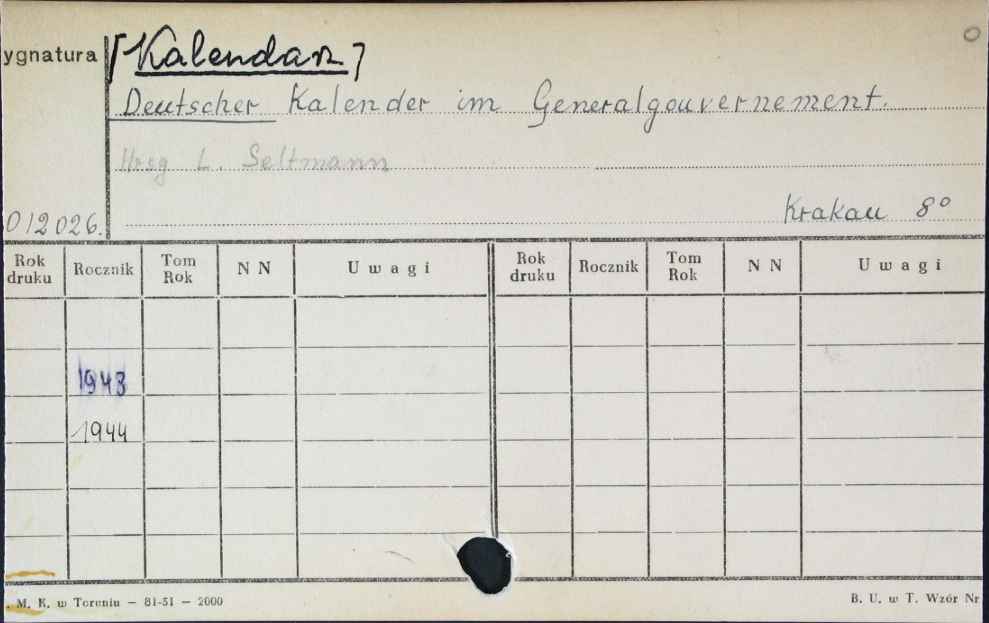 ygnatura [Kalendarz]
O
Deutscher Kalender im Generalgouvernement.
Hrsg L. Seltmann
Krakau 8°
012026.
Rok druku Rocznik Tom Rok N N Uwagi Rok druku Rocznik Tom Rok N N Uwagi
1943
1944
. M. K. w Toruniu — 81-51 — 2000
B. U. w T. Wzór Nr